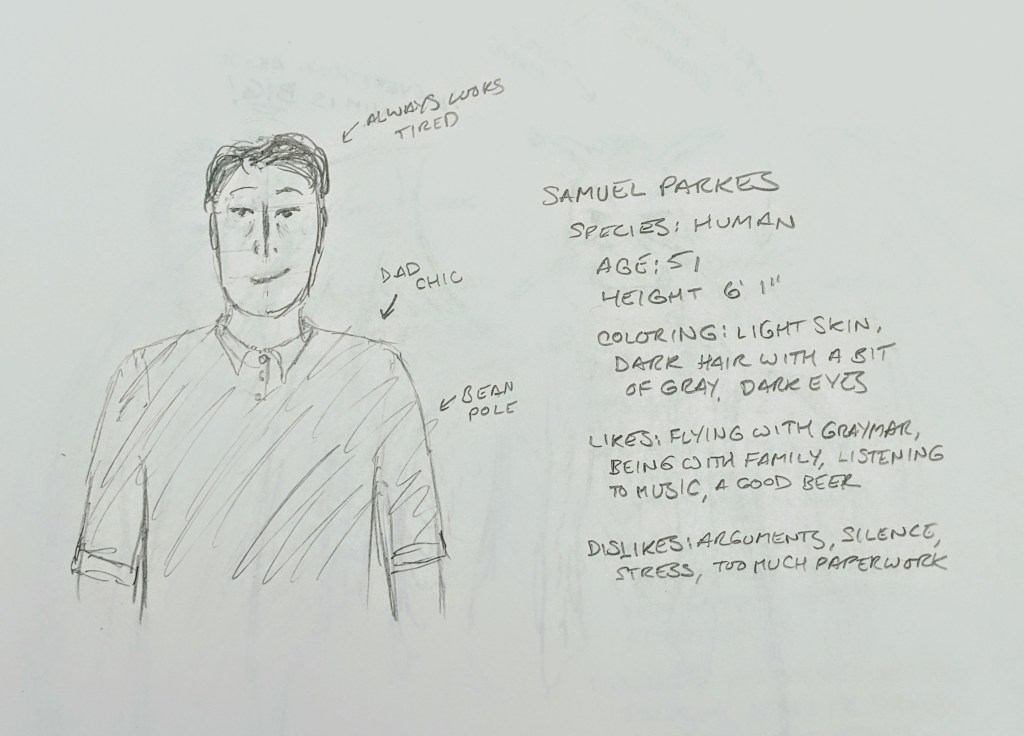 ALWAYS LOOKS
TIRED
DAD
CHIC
BEAN
POLE
SAMUEL PARKES
SPECIES: HUMAN
AGE: 51
HEIGHT 6' 1"
COLORING: LIGHT SKIN,
DARK HAIR WITH A BIT
OF GRAY, DARK EYES
LIKES: FLYING WITH GRAYMAR,
BEING WITH FAMILY, LISTENING
TO MUSIC, A GOOD BEER
DISLIKES: ARGUMENTS, SILENCE,
STRESS, TOO MUCH PAPERWORK